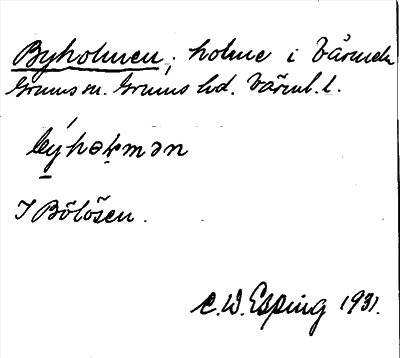 Byholmen, holme i Värmeln
Grums sn. Grums hd. Värml. l.
býhəɫmən
I Bölösen.
C.W. Esping 1931.